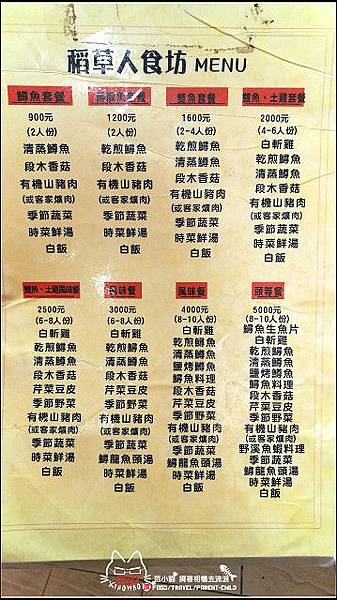 稻草人食坊 MENU
鱒魚套餐
900元
(2人份)
清蒸鱒魚
段木香菇
有機山豬肉
(或客家爌肉)
季節蔬菜
時菜鮮湯
白飯
套餐
1200元
(2人份)
乾煎鱒魚
段木香菇
有機山豬肉
(或客家爌肉)
季節蔬菜
時菜鮮湯
白飯
雙魚套餐
1600元
(2-4人份)
乾煎鱒魚
清蒸鱒魚
段木香菇
有機山豬肉
(或客家爌肉)
季節蔬菜
時菜鮮湯
白飯
雙魚、土雞套餐
2000元
(4-6人份)
白斬雞
乾煎鱒魚
清蒸鱒魚
段木香菇
有機山豬肉
(或客家爌肉)
季節蔬菜
時菜鮮湯
白飯
雙魚、土雞風味餐
2500元
(6-8人份)
白斬雞
乾煎鱒魚
清蒸鱒魚
段木香菇
芹菜豆皮
季節野菜
有機山豬肉
(或客家爌肉)
季節蔬菜
時菜鮮湯
白飯
風味餐
3000元
(6-8人份)
白斬雞
乾煎鱒魚
清蒸鱒魚
段木香菇
芹菜豆皮
季節野菜
有機山豬肉
(或客家爌肉)
季節蔬菜
鱘龍魚頭湯
時菜鮮湯
白飯
風味餐
4000元
(8-10人份)
白斬雞
乾煎鱒魚
清蒸鱒魚
鹽烤鱒魚
鱒魚料理
段木香菇
芹菜豆皮
季節野菜
有機山豬肉
(或客家爌肉)
季節蔬菜
鱘龍魚頭湯
時菜鮮湯
白飯
頭等餐
5000元
(8-10人份)
鱒魚生魚片
白斬雞
乾煎鱒魚
清蒸鱒魚
鹽烤鱒魚
鱒魚料理
段木香菇
芹菜豆皮
季節野菜
有機山豬肉
(或客家爌肉)
野溪魚蝦料理
季節蔬菜
鱘龍魚頭湯
時菜鮮湯
白飯
范小貓 揹著相機去流浪
FOOD/TRAVEL/PARENT-CHILD